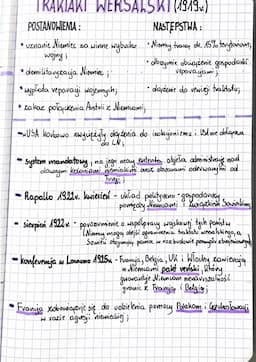 TRAKTAT WERSALSKI (1919r.)
POSTANOWIENIA :
NASTĘPSTWA :
• uznanie Niemiec za winne wybuchu
wojny ;
• demilitaryzacja Niemiec ;
• wypłata reparacji wojennych;
• zakaz połączenia Austrii z Niemcami;
• Niemcy tracą ok. 15% terytorium;
• olbrzymie obciążenie gospodarki
reparacjami ;
• dążenie do rewizji traktatu;
USA końcowo zwyciężyły dążenia do izolacjonizmu i USA nie dołączają
do LN ;
• system mandatowy ; na jego mocy ententa objęła administrację nad
dawnymi koloniami niemieckimi oraz obszarami oderwanymi od
Turcji ;
• Rapallo 1922r. kwiecień - układ polityczno-gospodarczy
pomiędzy Niemcami i
• sierpień 1922r. - porozumienie o współpracy wojskowej tych państw
(Niemcy mogą obejść ograniczenia traktatu wersalskiego, a
Sowieci otrzymują pomoc w rozbudowie przemysłu zbrojeniowego)
• konferencja w Locarno 1925r. - Francja, Belgia, UK i Włochy zawierają
z Niemcami pakt reński, który
gwarantuje Niemcom nienaruszalność
granic z Francją i Belgią;
• Francja zobowiązuje się do udzielenia pomocy Polakom i Czechosłowacji
w razie agresji niemieckiej ;